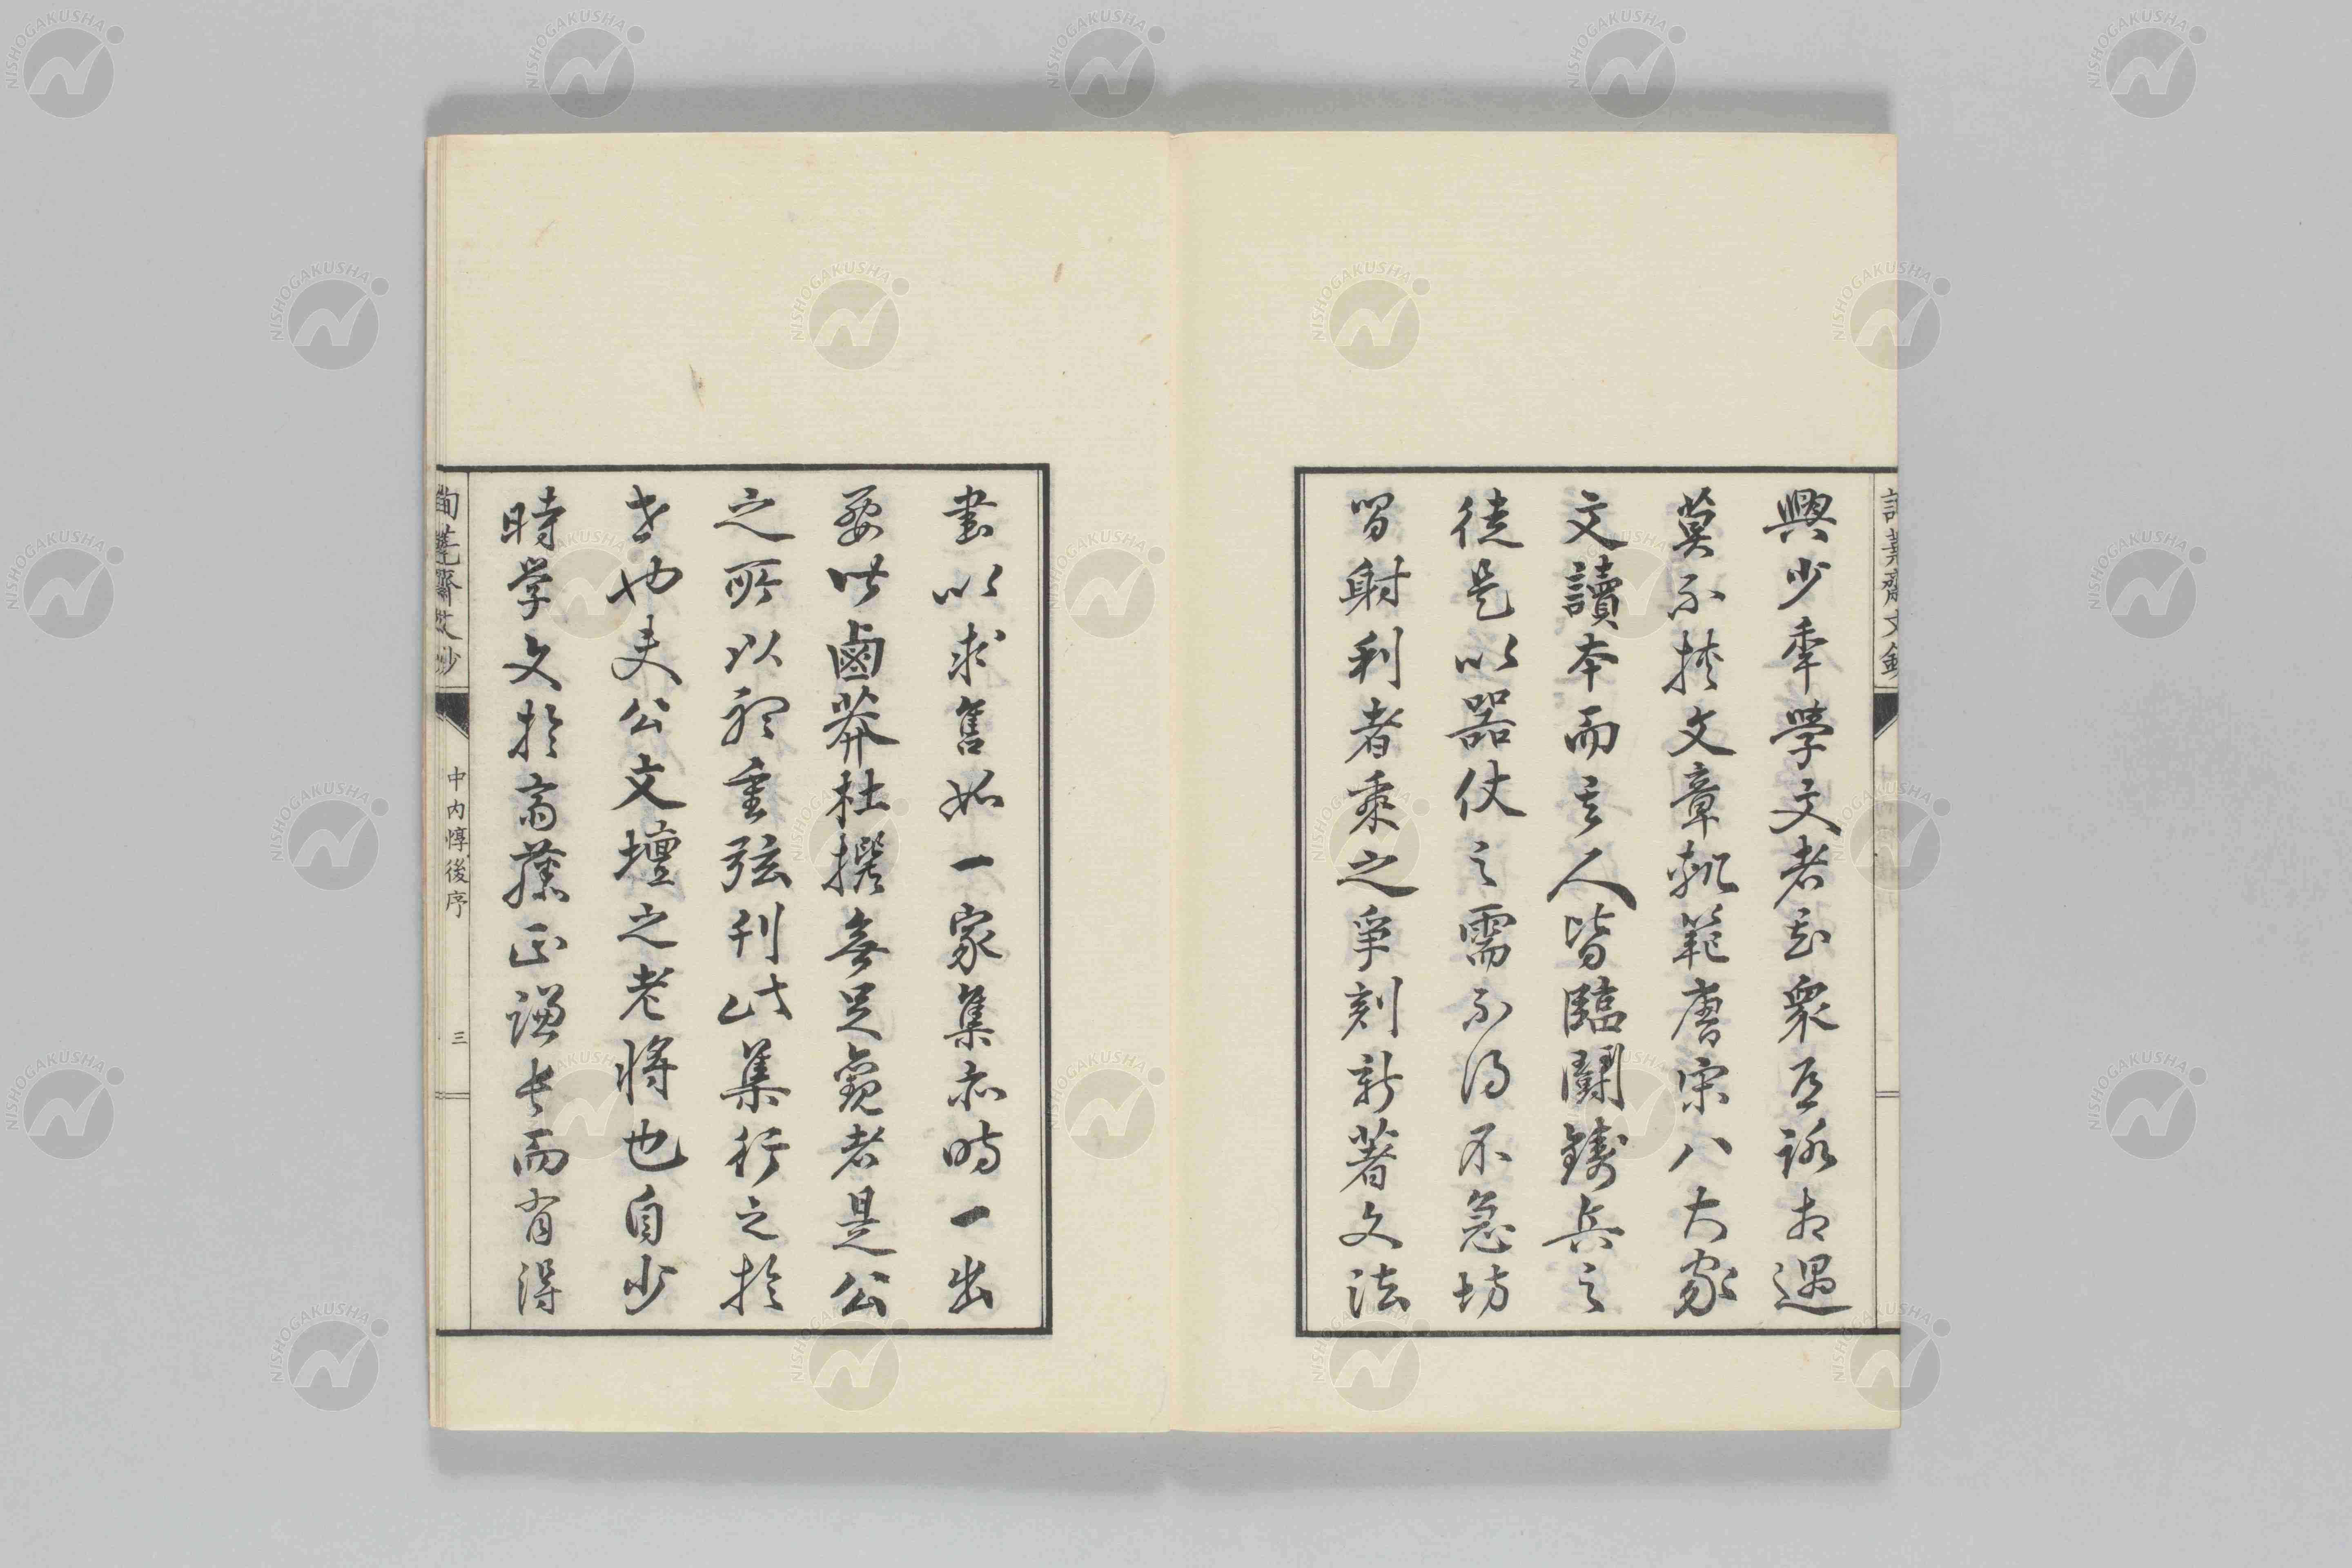 興少年學文者甚衆相遇
莫不挾文章軌範唐宋八大家
文讀本而其人皆臨鬪鑄兵之
徒是以器仗之需不得不急坊
間射利者乘之爭刻新著文法
書以求售如一家集亦時一出
要皆鹵莽杜撰無足觀者是公
之所以重刊此集行之於
世也夫公文壇之老將也自少
時学文於齋藤正謙長而得
詢蕘齋文鈔
中内惇後序
三